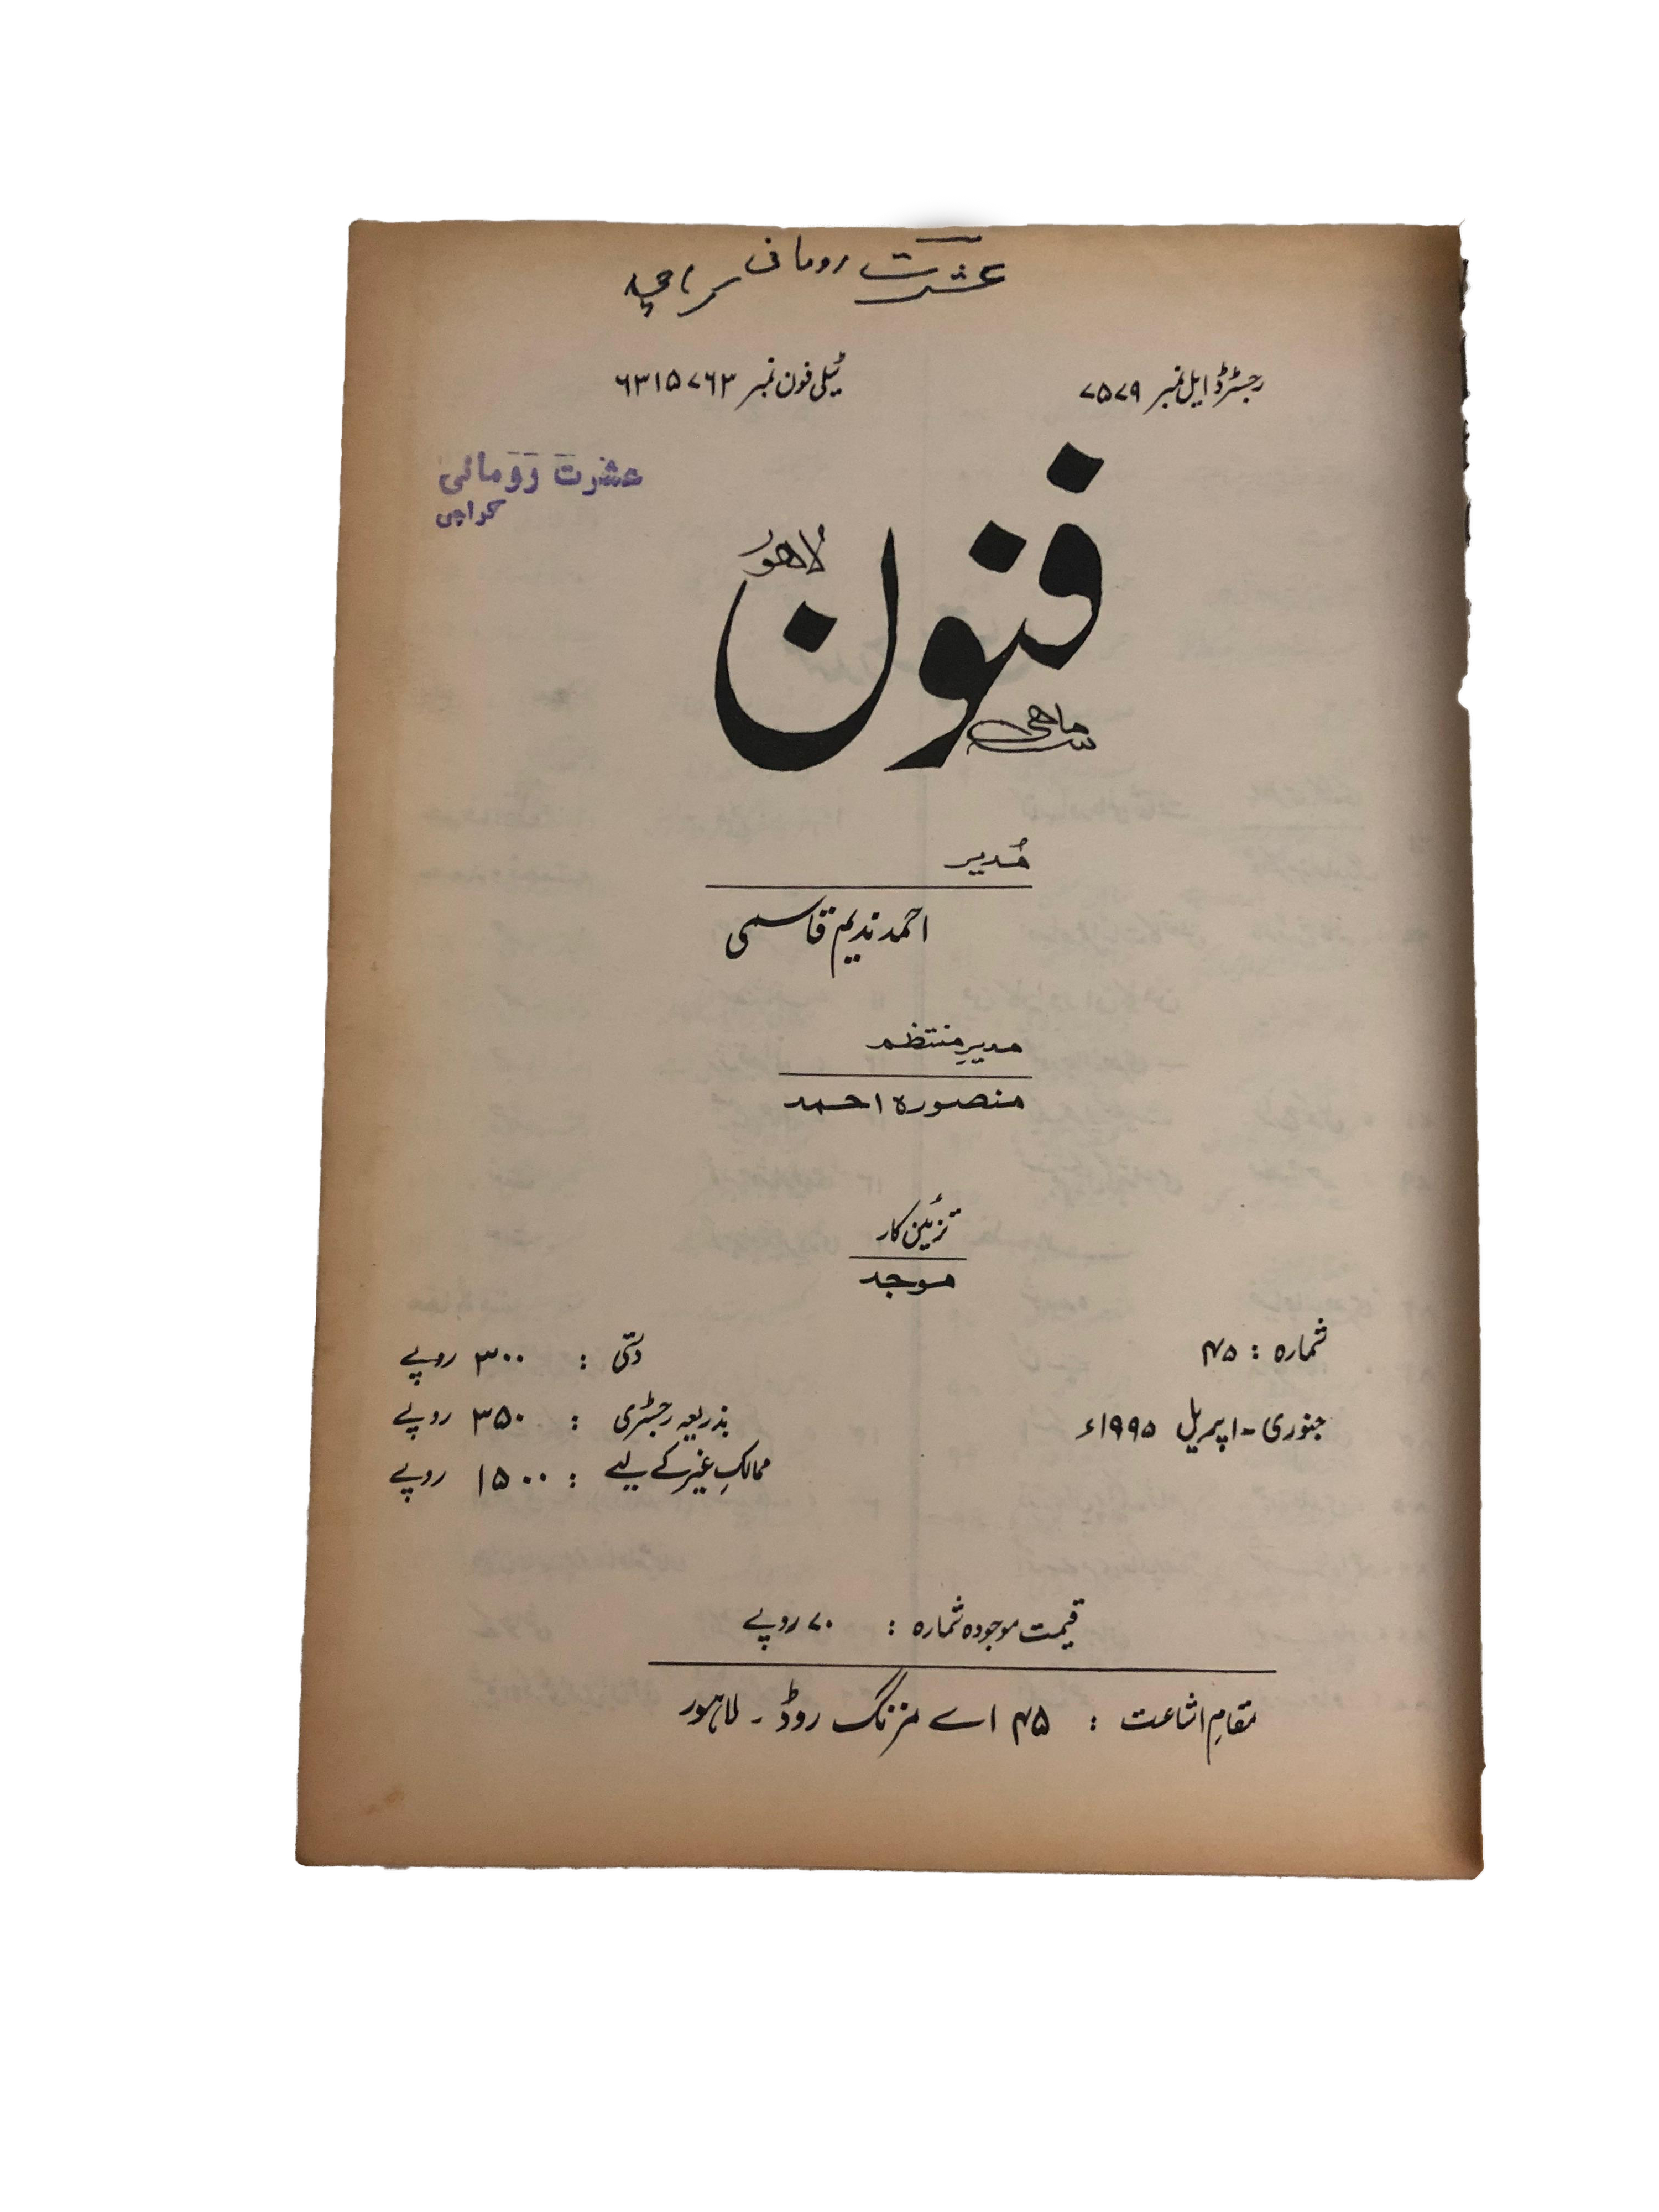 عشرت رومانی کراچی
رجسٹرڈ ایل نمبر ۷۵۷۹
ٹیلی فون نمبر ۶۳۱۵۷۶۳
عشرت رومانی
کراچی
لاهور
فنون
سہ ماهی
مُدیر
احمد ندیم قاسمی
مدیرِ منتظم
منصورہ احمد
تزئین کار
موجد
شمارہ : ۴۵
جنوری - اپریل ۱۹۹۵ء
دستی : ۳۰۰ روپے
بذریعہ رجسٹری : ۳۵۰ روپے
ممالکِ غیر کے لیے : ۱۵۰۰ روپے
قیمت موجودہ شمارہ : ۷۰ روپے
مقامِ اشاعت : ۴۵ اے مزنگ روڈ - لاہور